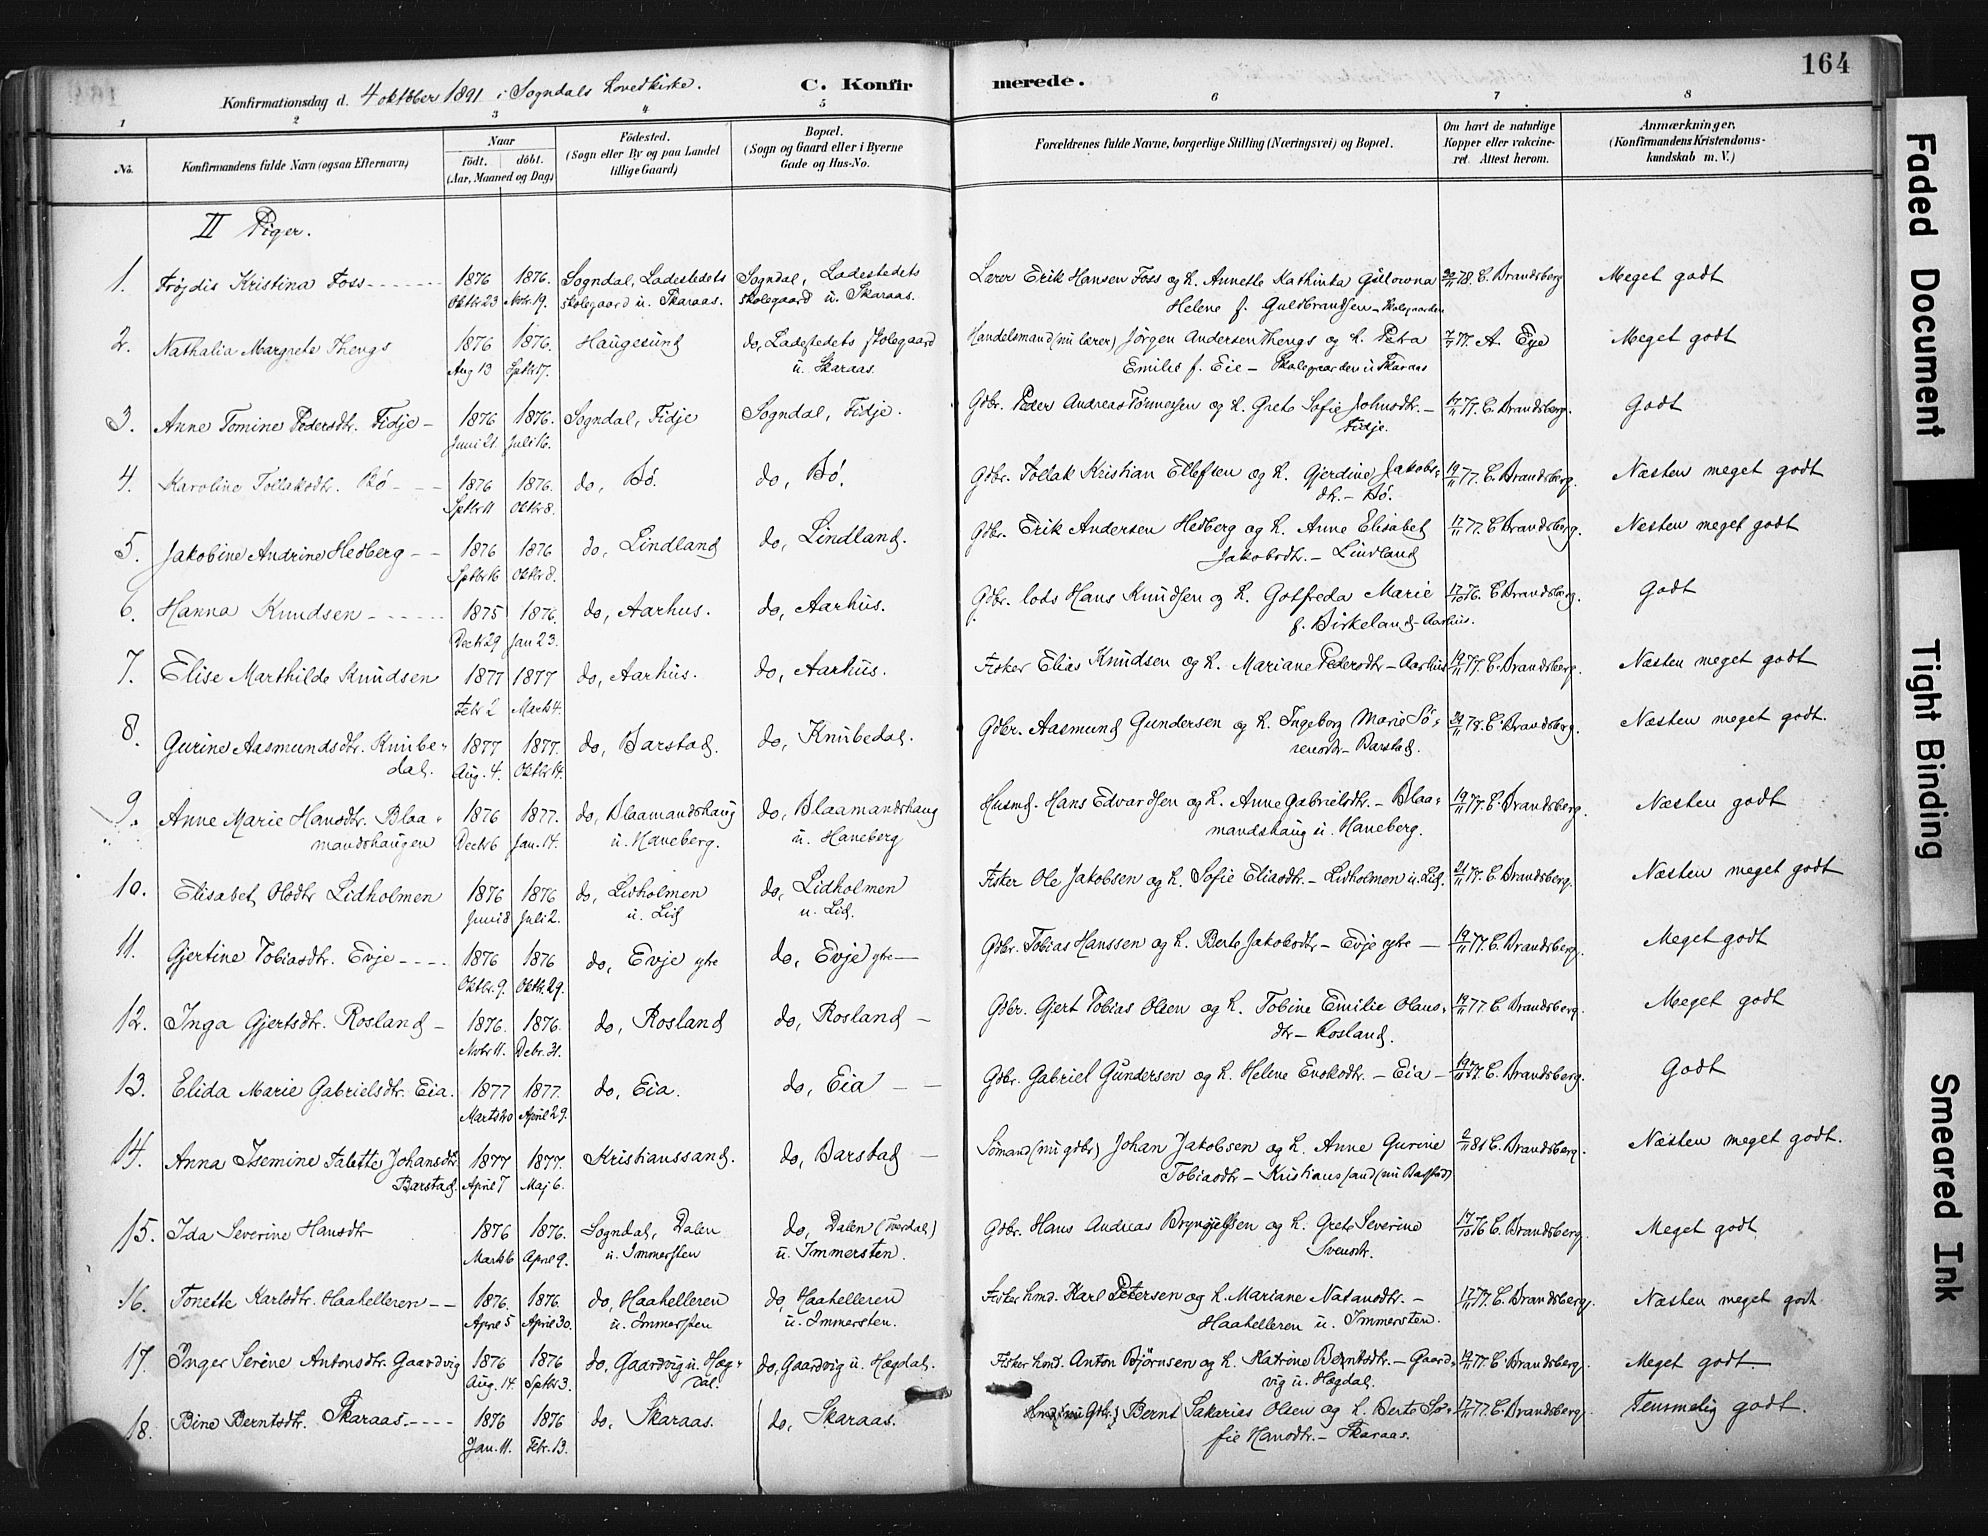 164
Konfirmationsdag d. 4 oktober 1891 i Sogndals Hovedkirke.
C. Konfirmerede.
1 2 3 4 5 6 7 8
No.
Konfirmandens fulde Navn (ogsaa Efternavn)
Naar
födt. döbt.
(Aar, Maaned og Dag)
Födested.
(Sogn eller By og paa Landet
tillige Gaard)
Bopæl.
(Sogn og Gaard eller i Byerne
Gade og Hus-No.
Forældrenes fulde Navne, borgerlige Stilling (Næringsvei) og Bopæl.
Om havt de naturlige
Kopper eller vakcine-
ret. Attest herom.
Anmærkninger.
(Konfirmandens Kristendoms-
kundskab m. V.)
II Piger.
1. Frøjdis Kristina Foss 1876 1876. Sogndal, Ladestedets Sogndal, Ladestedets Lærer Erik Hansen Foss og h. Annette Kathinka Gulowna 30/11 78. C. Brandsberg Meget godt
Oktbr 23 Novbr. 19. skolegaard u. Skaraas. skolegaard u. Skaraas. Helene f. Guldbrandsen - Skolegaarden
2. Nathalia Margrete Thengs 1876 1876. Haugesund do, Ladestedets skolegaard Handelsmand (nu lærer) Jörgen Andersen Thengs og h. Petra A Eye Meget godt
Aug 13 Septbr 17. u. Skaraas. Emilie f. Eie - Skolegaarden u Skaraas
3. Anne Tomine Pedersdtr. Fidje 1876 1876. Sogndal, Fidje Sogndal, Fidje. Gdbr. Peder Andreas Tönnessen og h. Grete Sofie Johnsdtr. - 19/11 77. C. Brandsberg. Godt
Juni 21 Juli 16. Fidje.
4. Karoline Tollaksdtr. Bö 1876 1876. do, Bö. do, Bö. Gdbr. Tollak Kristian Ellefsen og h. Gjerdine Jakobs- 19/11 77. C. Brandsberg. Næsten meget godt
Septbr 11 Oktbr 8. dtr. - Bö.
5. Jakobine Andrine Hedberg 1876 1876 do, Lindland do, Lindland. Gdbr. Erik Andersen Hedberg og h. Anne Elisabet 17/11 77. C Brandsberg. Næsten meget godt
Septbr 16 Oktbr 8. Jakobsdtr. - Lindland
6. Hanna Knudsen 1875 1876. do, Aarhus. do, Aarhus. Gdbr. lods Hans Knudsen og h. Gotfreda Marie 17/10 76. C Brandsberg. Godt
Decbr 29 Jan 23. f. Birkeland - Aarhus.
7. Elise Marthilde Knudsen 1877 1877 do, Aarhus. do, Aarhus. Fisker Elias Knudsen og h. Mariane Pedersdtr - Aarhus 19/11 77. C. Brandsberg. Næsten meget godt
Febr 2 Marts 4.
8. Gurine Aasmundsdtr. Knube- 1877 1877. do, Barstad. do, Knubedal. Gdbr. Aasmund Gundersen og h. Ingeborg Marie Sö- 78. C. Brandsberg. Næsten meget godt.
dal. Aug. 4. Oktbr 14. rensdtr - Barstad.
9. Anne Marie Hansdtr. Blaa- 1876 1877. do, Blaamandshaug do, Blaamandshaug Husmd. Hans Edvardsen og h. Anne Gabrielsdtr. - Blaa- 19/11 77. C. Brandsberg. Næsten godt
mandshaugen Decbr 6 Jan. 14. u. Haneberg. u. Haneberg mandshaug u. Haneberg.
10. Elisabet Olsdtr Lidholmen 1876 1876 do, Lidholmen do, Lidholmen Fisker Ole Jakobsen og h. Sofie Eliasdtr. - Lidholmen u. Lid. 21/11 78. C. Brandsberg. Næsten meget godt
Juni 8 Juli 2. u. Lid u. Lid.
11. Gjertine Tobiasdtr. Evje 1876 1876 do, Evje ytre do, Evje ytre Gdbr. Tobias Hanssen og h. Berte Jakobsdtr - Evje ytre 19/11 77. C. Brandsberg. Meget godt
Oktbr. 9. Oktbr. 29.
12. Inga Gjertsdtr. Rosland 1876. 1876. do, Rosland do, Rosland Gdbr. Gjert Tobias Olsen og h. Tobine Emilie Olaus- 19/11 77. C. Brandsberg. Meget godt
Novbr 11. Debr. 31. dtr - Rosland.
13. Elida Marie Gabrielsdtr. Eia. 1877 1877. do, Eia. do, Eia Gdbr. Gabriel Gundersen og h. Helene Enoksdtr. - Eia 19/11 77. C. Brandsberg. Godt
Marts 20 April 29.
14. Anna Isemine Falette Johansdtr. 1877 1877. Kristianssand. do, Barstad Sömand (nu gdbr) Johan Jakobsen og h. Anne Gurine 2/11 81 C. Brandsberg. Næsten meget godt.
Barstad. April 7 Maj 6. Tobiasdtr - Kristianssand (nu Barstad)
15. Ida Severine Hansdtr 1876 1876. Sogndal, Dalen do, Dalen (Tverdal) Gdbr. Hans Andreas Bryngjelsen og h. Grete Severine 17/10 76 C. Brandsberg. Meget godt
Marts 6 April 9. u. Immersten u. Immersten. Svensdtr.
16. Tonette Karlsdtr. Haahelleren 1876. 1876. do, Haahelleren do, Haahelleren Fisker hmd. Karl Petersen og h. Mariane Natansdtr. - 17/11 77. C. Brandsberg. Næsten meget godt
April 5 April 30. u. Immersten u. Immersten. Haahelleren u. Immersten.
17. Inger Serène Antonsdtr. Gaardvig 1876 1876 do, Gaardvig u. Hæg- do, Gaardvig u. Hægdal. Fisker hmd. Anton Björnsen og h. Katrine Berntsdtr. - Gaard- 19/11 77. C. Brandsberg. Meget godt
Aug. 14. Septbr 3. dal. vig u. Hægdal.
18. Bine Berntsdtr. Skaraas 1876 1876 do, Skaraas. do, Skaraas. Hmd (nu Gdbr.) Bernt Sakarias Olsen og h. Berte So- 17/11 77. C. Brandsberg. Temmelig godt.
Jan. 11. Febr. 13. fie Hansdtr. - Skaraas.
Faded Document
Tight Binding
Smeared Ink